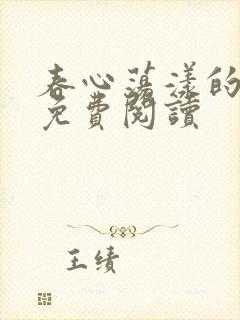 春心蕩漾的
免費閱讀
王績